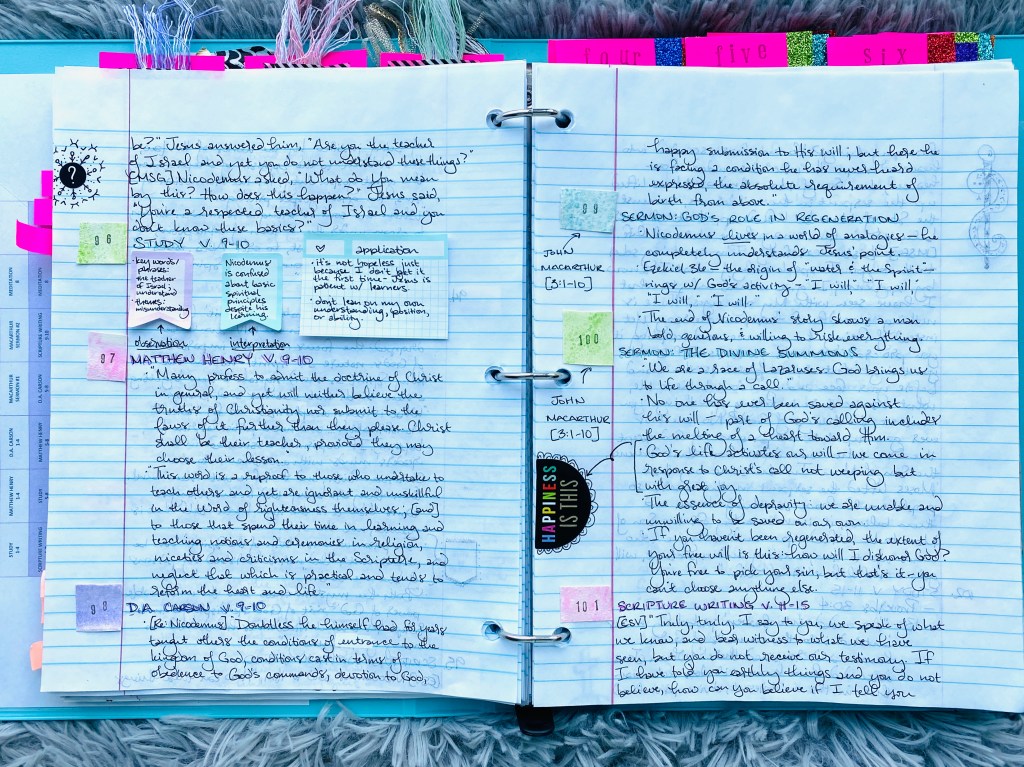 four
five
six
be?" Jesus answered him, "Are you the teacher
of Israel and yet you do not understand these things?"
[MSG] Nicodemus asked, "What do you mean
by this? How does this happen?" Jesus said,
"You're a respected teacher of Israel and you
don't know these basics?"
?
96
STUDY V. 9-10
• key words/
phrases:
the teacher
of Israel,
understand
• themes:
misunderstanding
observation
Nicodemus
is confused
about basic
spiritual
principles
despite his
learning.
interpretation
application
• it's not hopeless just
because I don't get it
the first time - Jesus is
patient w/ learners
• don't lean on my own
understanding, position,
or ability.
97
MATTHEW HENRY V. 9-10
• "Many profess to admit the doctrine of Christ
in general, and yet will neither believe the
truths of Christianity nor submit to the
laws of it further than they please. Christ
shall be their teacher, provided they may
choose their lesson."
• "This word is a reproof to those who undertake to
teach others and yet are ignorant and unskillful
in the Word of righteousness themselves; [and]
to those that spend their time in learning and
teaching notions and ceremonies in religion,
niceties and criticisms in the Scripture, and
neglect that which is practical and tends to
reform the heart and life."
98
D.A. CARSON V. 9-10
• [Re: Nicodemus] "Doubtless he himself had for years
taught others the conditions of entrance to the
kingdom of God, conditions cast in terms of
obedience to God's commands, devotion to God,
happy submission to His will; but here he
is facing a condition he has never heard
expressed, the absolute requirement of
birth from above."
99
JOHN
MACARTHUR
[3:1-10]
SERMON: GOD'S ROLE IN REGENERATION
• Nicodemus lives in a world of analogies - he
completely understands Jesus' point.
• Ezekiel 36 - the origin of "water & the Spirit" -
rings w/ God's activity - "I will," "I will,"
"I will," "I will."
• The end of Nicodemus' story shows a man
bold, generous, & willing to risk everything.
100
JOHN
MACARTHUR
[3:1-10]
SERMON: THE DIVINE SUMMONS
• "We are a race of Lazaruses. God brings us
to life through a call."
• No one has ever been saved against
his will - part of God's calling includes
the melting of a heart toward Him.
• God's life activates our will - we come in
response to Christ's call not weeping but
with great joy.
HAPPINESS
IS THIS
• The essence of depravity: we are unable and
unwilling to be saved on our own.
• If you haven't been regenerated, the extent of
your free will is this: how will I dishonor God?
You're free to pick your sin, but that's it - you
can't choose anything else.
101
SCRIPTURE WRITING V. 11-15
[ESV] "Truly, truly, I say to you, we speak of what
we know, and bear witness to what we have
seen, but you do not receive our testimony. If
I have told you earthly things and you do not
believe, how can you believe if I tell you
MEDITATION
MACARTHUR
SERMON #2
SCRIPTURE WRITING
MACARTHUR
SERMON #1
D.A. CARSON
D.A. CARSON
1-4
MATTHEW HENRY
MATTHEW HENRY
1-4
STUDY
STUDY
1-4
SCRIPTURE WRITING